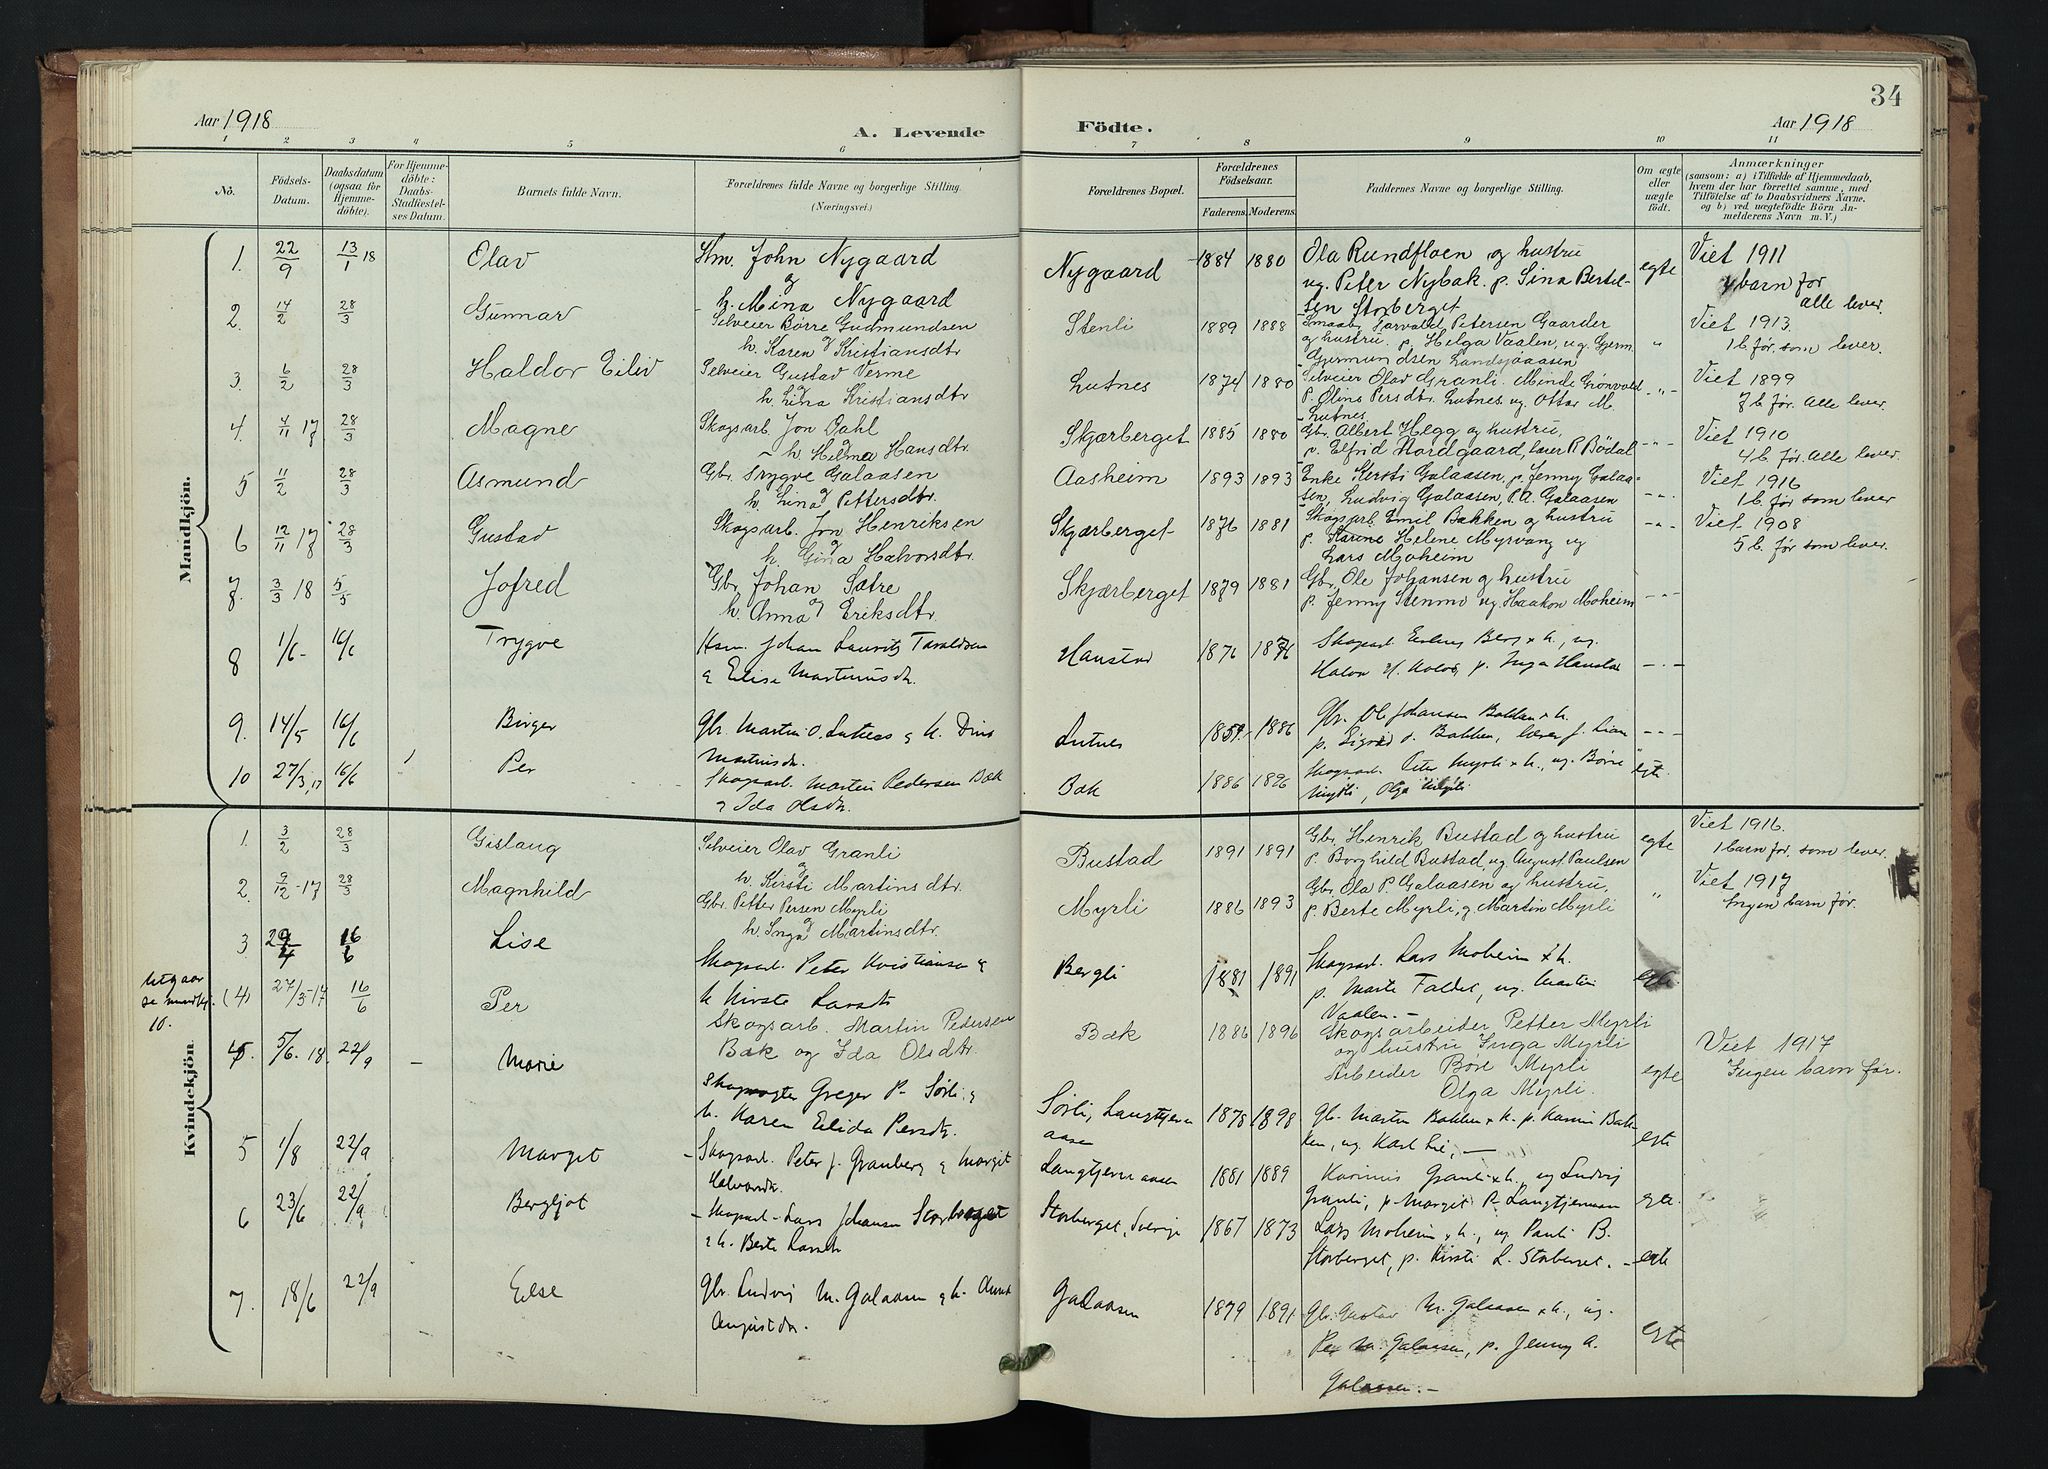 34
Aar 1918
A. Levende
Födte.
Aar 1918
1 2 3 4 5 6 7 8 9 10 11
No.
Födsels-Datum.
Daabsdatum (ogsaa for Hjemmedöbte).
For Hjemmedöbte: Daabs-Stadfæstelses Datum.
Barnets fulde Navn.
Forældrenes fulde Navne og borgerlige Stilling.
(Næringsvei.)
Forældrenes Bopæl.
Forældrenes Födselsaar.
Faderens. Moderens.
Faddernes Navne og borgerlige Stilling.
Om ægte eller uægte födt.
Anmærkninger
(saasom: a) i Tilfælde af Hjemmedaab, hvem der har forrettet samme, med Tilföielse af to Daabsvidners Navne. og b) ved uægtefödte Börn Anmelderens Navn m. V.)
Mandkjön.
1. 22/9 13/1 18 Olav
Hm. John Nygaard
og
h. Mina Nygaard
Nygaard 1884 1880
Ola Rundfloen og hustru
ug. Peter Nybak. p. Sina Bertel-
sen Storberget
egte
Viet 1911
4 barn før
alle lever.
2. 14/2 28/3 Gunnar
Selveier Børre Gudmundsen
og
h. Karen Kristiansdtr
Stenli 1889 1888
Petersen Gaarder
og hustru. p. Helga Vaalen, ug. Gjerm.
Gjermundsen
"
Viet 1913.
1 b. før. som lever.
3. 6/2 28/3 Haldor Eiliv
Selveier Gustav Verme
h. Lina Kristiansdtr
Lutnes 1874 1880
Selveier Olav Granli. Minde Grønvold
p. Olina Persdtr. Lutnes ug. Ottar M.
Lutnes
- " -
Viet 1899
7 b. før. Alle lever.
4. 4/11 17 28/3 Magne
Skogsarb. Jon Dahl
og
- h. Helma Hansdtr.
Skjærberget 1885 1880
Gbr. Albert Hegg og hustru,
p. Elfrid Nordgaard, lærer P. Bödal
- " -
Viet 1910
4 b. før. Alle lever.
5 11/2 28/3 Asmund
Gbr. Trygve Galaasen
og
h. Lina Pettersdtr.
Aasheim 1893 1893
Enke Kersti Galaasen, p. Jenny Galaa-
sen, Ludvig Galaasen, P. A. Galaasen
- " -
Viet 1916
1 b. før som lever
6 12/11 17 28/3 Gustav
Skogsarb. Jon Henriksen
og
h. Gina Halvorsdtr.
Skjærberget 1876 1881
Skogsarb. Emil Bakken og hustru
p. Karine Helene Myrvang ug
Lars Moheim
- " -
Viet 1908
5 b. før som lever.
7. 3/3 18 5/5 Jofred
Gbr. Johan Sætre
og
h. Anna Eriksdtr.
Skjærberget 1879 1881
Gbr. Ole Johansen og hustru
p. Jenny Stenmo ug. Haakon Moheim
- " -
8 1/6 - 16/6 Trygve
Hsm. Johan Lauritz Taraldsen
& Elise Martinusdtr.
1876 1876
Skogsarb. Erling Berg & h., ug.
p. Inga
- " -
9. 14/5 16/6 Birger
Gbr. Martin O. Lutnes & h. Dina
Martinusdtr.
Lutnes 1859. 1886
Gbr. Ole Johansen Bakken & h.
p. Sigrid O. Bakken, lærer J. Lian
- " -
10 27/3, 17 16/6 Per
Skogsarb. Martin Pedersen Bæk
& Ida Olsdtr.
Bæk 1886 1896
Skogsarb. Peter Myrli & h., ug. Børre
Myrli, Olga Myrli
egte.
Kvindekjön.
1. 3/2 28/3 Gislaug
Selveier Olav Granli
og
h. Kirsti Martinsdtr.
Bustad 1891 1891
Gbr. Henrik Bustad og hustru
p. Borghild Bustad, ug. August Paulsen
egte
Viet 1916.
1 barn før. som lever.
2. 9/12 - 17 28/3 Magnhild
Gbr. Petter Persen Myrli
og
h. Inga Martinsdtr.
Myrli 1886 1893
Gbr. Ola P. Galaasen og hustru,
p. Berte Myrli, g. Martin Myrli
"
Viet 1917
Ingen barn før.
3 29/4 16/6 Lise
Skogsarb. Peter Kristiansen &
h. Kirste Larsdtr
Bergli 1881 1891
Skogsarb. Lars Moheim & h.
p. Marte Faldet, ug. Martin
Vaalen. -
egte.
utgaar
se mandkj.
10.
(4) 27/3 - 17 16/6 Per
Skogsarb. Martin Pedersen
Bæk og Ida Olsdtr.
Bæk 1886 1896
Skogsarbeider Petter Myrli
og hustru Inga Myrli
Arbeider Börre Myrli
Olga Myrli.
egte
Viet 1917
Ingen barn før.
4. 5/6. 18. 22/9 - Marie
Skogvogter Greger P. Sørli &
h. Karen Elida Persdtr.
Sørli, Langtjern
aasen
1878 1898
Gbr. Martin Bakken & h. p. Karin Bak-
ken, ug. Karl Lie, -
egte
5 1/8 22/9 Marget
- Skogsarb. Peter J. Granberg & Marget
Halvorsdtr.
Langtjernaasen 1881 1889
Karinus Granli & h., ug Ludvig
Granli, p. Marget P. Langtjernaasen
egte.
6 23/6 22/9 Bergljot
- Skogsarb. Lars Johansen Storberget
& h. Berte Larsdtr
Storberget, Sverige 1867 1873
Lars Moheim & h., ug Paul B.
Storberget, p. Kirsti L. Storberget. -
egte
7. 18/6 22/9 Else
Gbr. Ludvig M. Galaasen & h. Anna
Augustdtr.
Galaasen 1879 1891
Gbr. Gustav M. Galaasen & h., ug.
Per M. Galaasen, p. Jenny A.
Galaasen. -
egte